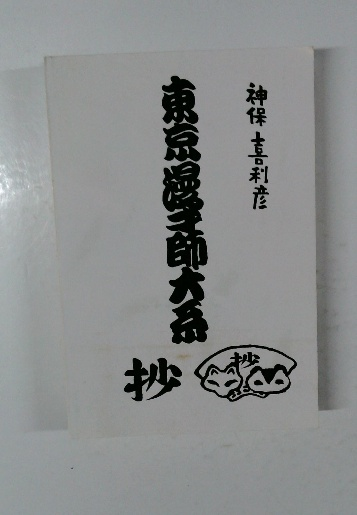 神保喜利彦
東京漫才師大系
抄
抄